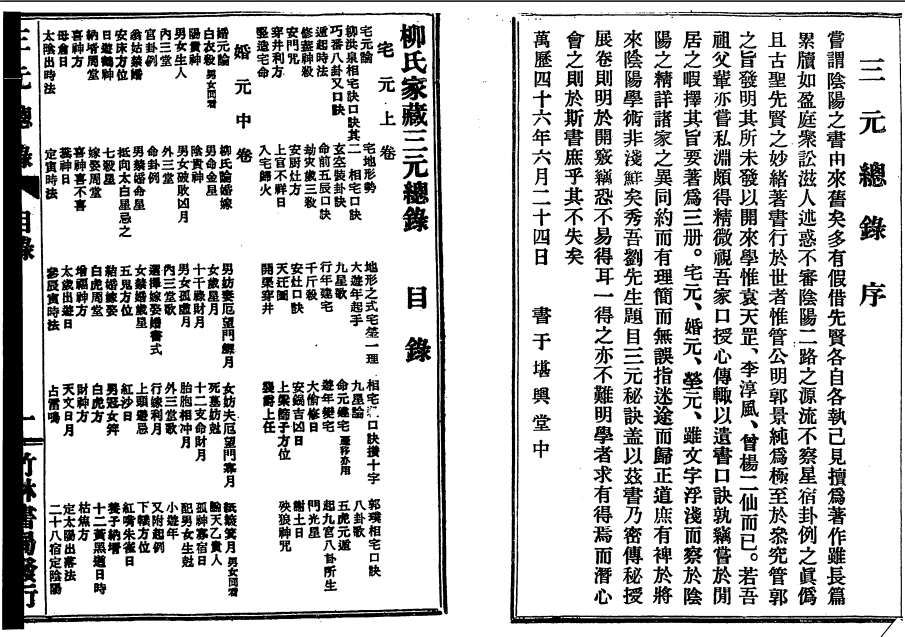 三元總錄序
嘗謂陰陽之書由來舊矣多有假借先賢各自各執已見擅爲著作雖長篇
累牘如盈庭衆訟滋人述惑不審陰陽二路之源流不察星宿卦例之眞僞
且古聖先賢之妙緒著書行於世者惟管公明郭景純爲極至於叅究管郭
之旨發明其所未發以開來學惟袁天罡、李淳風、曾楊二仙而已。若吾
祖父輩亦嘗私淵頗得精微視吾家口授心傳輙以遺書口訣孰竊嘗於閒
居之暇擇其旨要著爲三册。宅元、婚元、塋元、雖文字浮淺而察於陰
陽之精詳諸家之異同約而有理簡而無誤指迷途而歸正道庶有裨於將
來陰陽學術非淺鮮矣秀吾劉先生題目三元秘訣盖以茲書乃密傳秘授
展卷則明於開竅竊恐不易得耳一得之亦不難明學者求有得焉而潛心
會之則於斯書庶乎其不失矣
萬歷四十六年六月二十四日 書于堪輿堂中
柳氏家藏三元總錄 目錄
宅元上卷
宅元論 宅地形勢 地形之式宅塋一理 相宅口訣攢十字 郭璞相宅口訣
柳洪泉相宅口訣其二 相宅口訣 大遊年起手 九星論 八卦歌
巧番八卦又口訣 玄空裝卦訣 九星歌 命元建宅遷移亦用 五虎元遁
遁起時法 命前五辰口訣 行年建宅 遊年變宅 起九宮八卦所生
修塋神殺 劫灾歲三殺 千斤殺 大偷修日 門光星
安門咒 安厨灶方 安灶口訣 安鍋吉凶日 謝土日
穿井利方 上官不祥日 天迋圖 上樑篩子方位 殃狼神咒
豎造宅命 入宅歸火 開渠穿井 襲爵上任
婚元中卷
婚元論 柳氏論婚嫁 男妨妻厄望門鰥月 女妨夫厄望門寡月 箕月男女同看
白衣殺男女同看 男命金星 女歲星月 死墓妨尅 驗天乙貴人
陽貴神 陰貴神 十干祿財月 十二支命財月 孤神寡宿日
男女生人 男女破敗凶月 男女孤虛月 胎胞相冲月 配男女生尅
內三堂 外三堂 內三堂歌 外三堂歌 小遊年
官卦例 命卦例 選擇嫁娶婚書式 行嫁利月 又附起例
翁姑禁婚 男禁婚命星 女禁婚歲星 上頭避忌 下轎方位
安床方位 柢向太白星忌之 五鬼方位 紅沙日 紅嘴朱雀日
日遊鶴神 七殺星 結婚嫁娶 男冠女笄 養子納壻
納壻周堂 嫁娶周堂 白虎周堂 白虎方 十二黃黑道日時
喜神方 喜神喜不喜 增福神方 財神方 枯焦方
母倉日 蓋神日 太歲出遊日 天文日月 定太陽出落法
太陰出時法 定寅時法 參辰寅時法 占雷鳴 二十八宿定陰陽
三元總錄 目錄 一 竹林書局發行